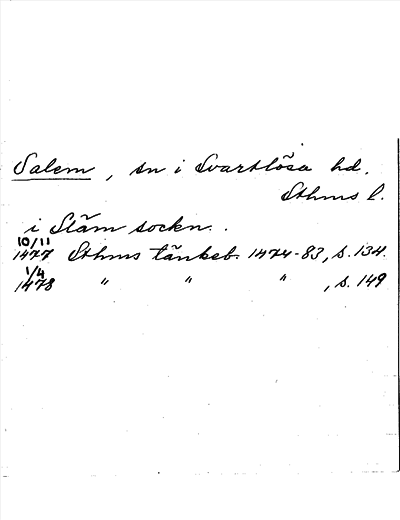 Salem, sn i Svartlösa hd.
Sthms l.
i Släm sockn.
10/11
1477 Sthms tänkeb. 1474-83, s. 134.
1/4
1478 " " " , s. 149